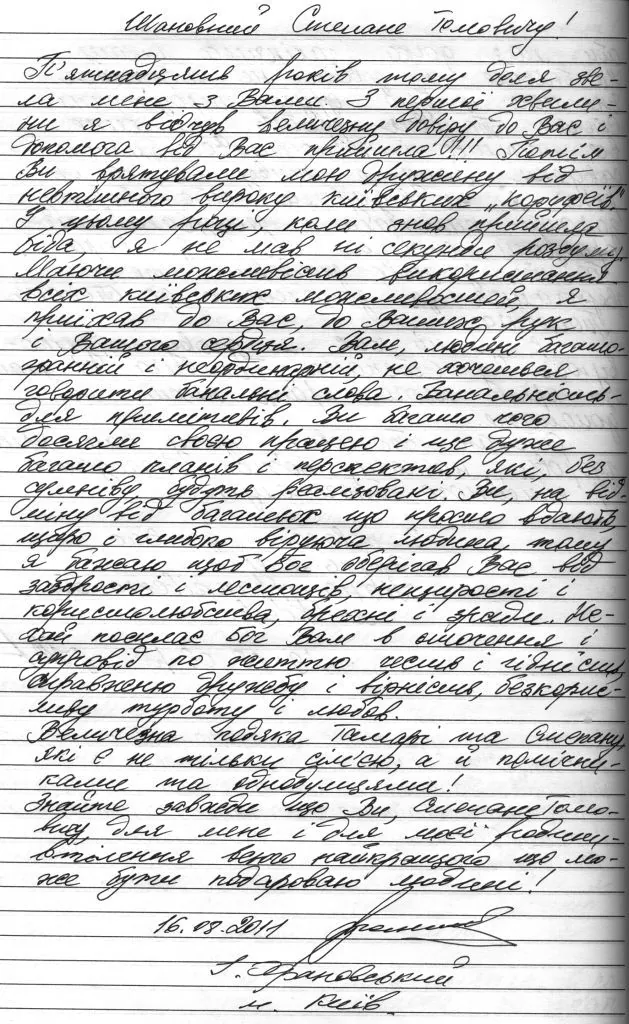 Шановний Степане Томовичу!
П'ятнадцять років тому доля зве-
ла мене з Вами. З першої хвили-
ни я відчув величезну довіру до Вас і
допомога від Вас прийшла!!! Потім
Ви врятували мою дружину від
невтішного вироку київських „корифеїв".
У цьому році, коли знов прийшла
біда, я не мав ні секунди роздуму.
Маючи можливість використання
всіх київських можливостей, я
приїхав до Вас, до Ваших рук
і Вашого серця. Вам, людині багато-
гранній і неординарній, не хочеться
говорити банальні слова. Банальність-
для примітивів. Ви багато чого
досягли своєю працею і ще дуже
багато планів і перспектив, які, без
сумніву будуть реалізовані. Ви, на від-
міну від багатьох що просто вдають,
щиро і глибоко віруюча людина, тому
я бажаю щоб Бог оберігав Вас від
заздрості і лестощів, нещирості і
користолюбства, брехні і зради. Не-
хай посилає Бог Вам в оточення і
супровід по життю честь і гідність,
справжню дружбу і вірність, безкорис-
ливу турботу і любов.
Величезна подяка Тамарі та Степану,
які є не тільки сім'єю, а й помічни-
ками та однодумцями!
Знайте завжди що Ви, Степане Томо-
вичу, для мене і для моєї родини-
втілення всього найкращого що мо-
же бути подаровано людині!
16.08.2011
м. Київ.